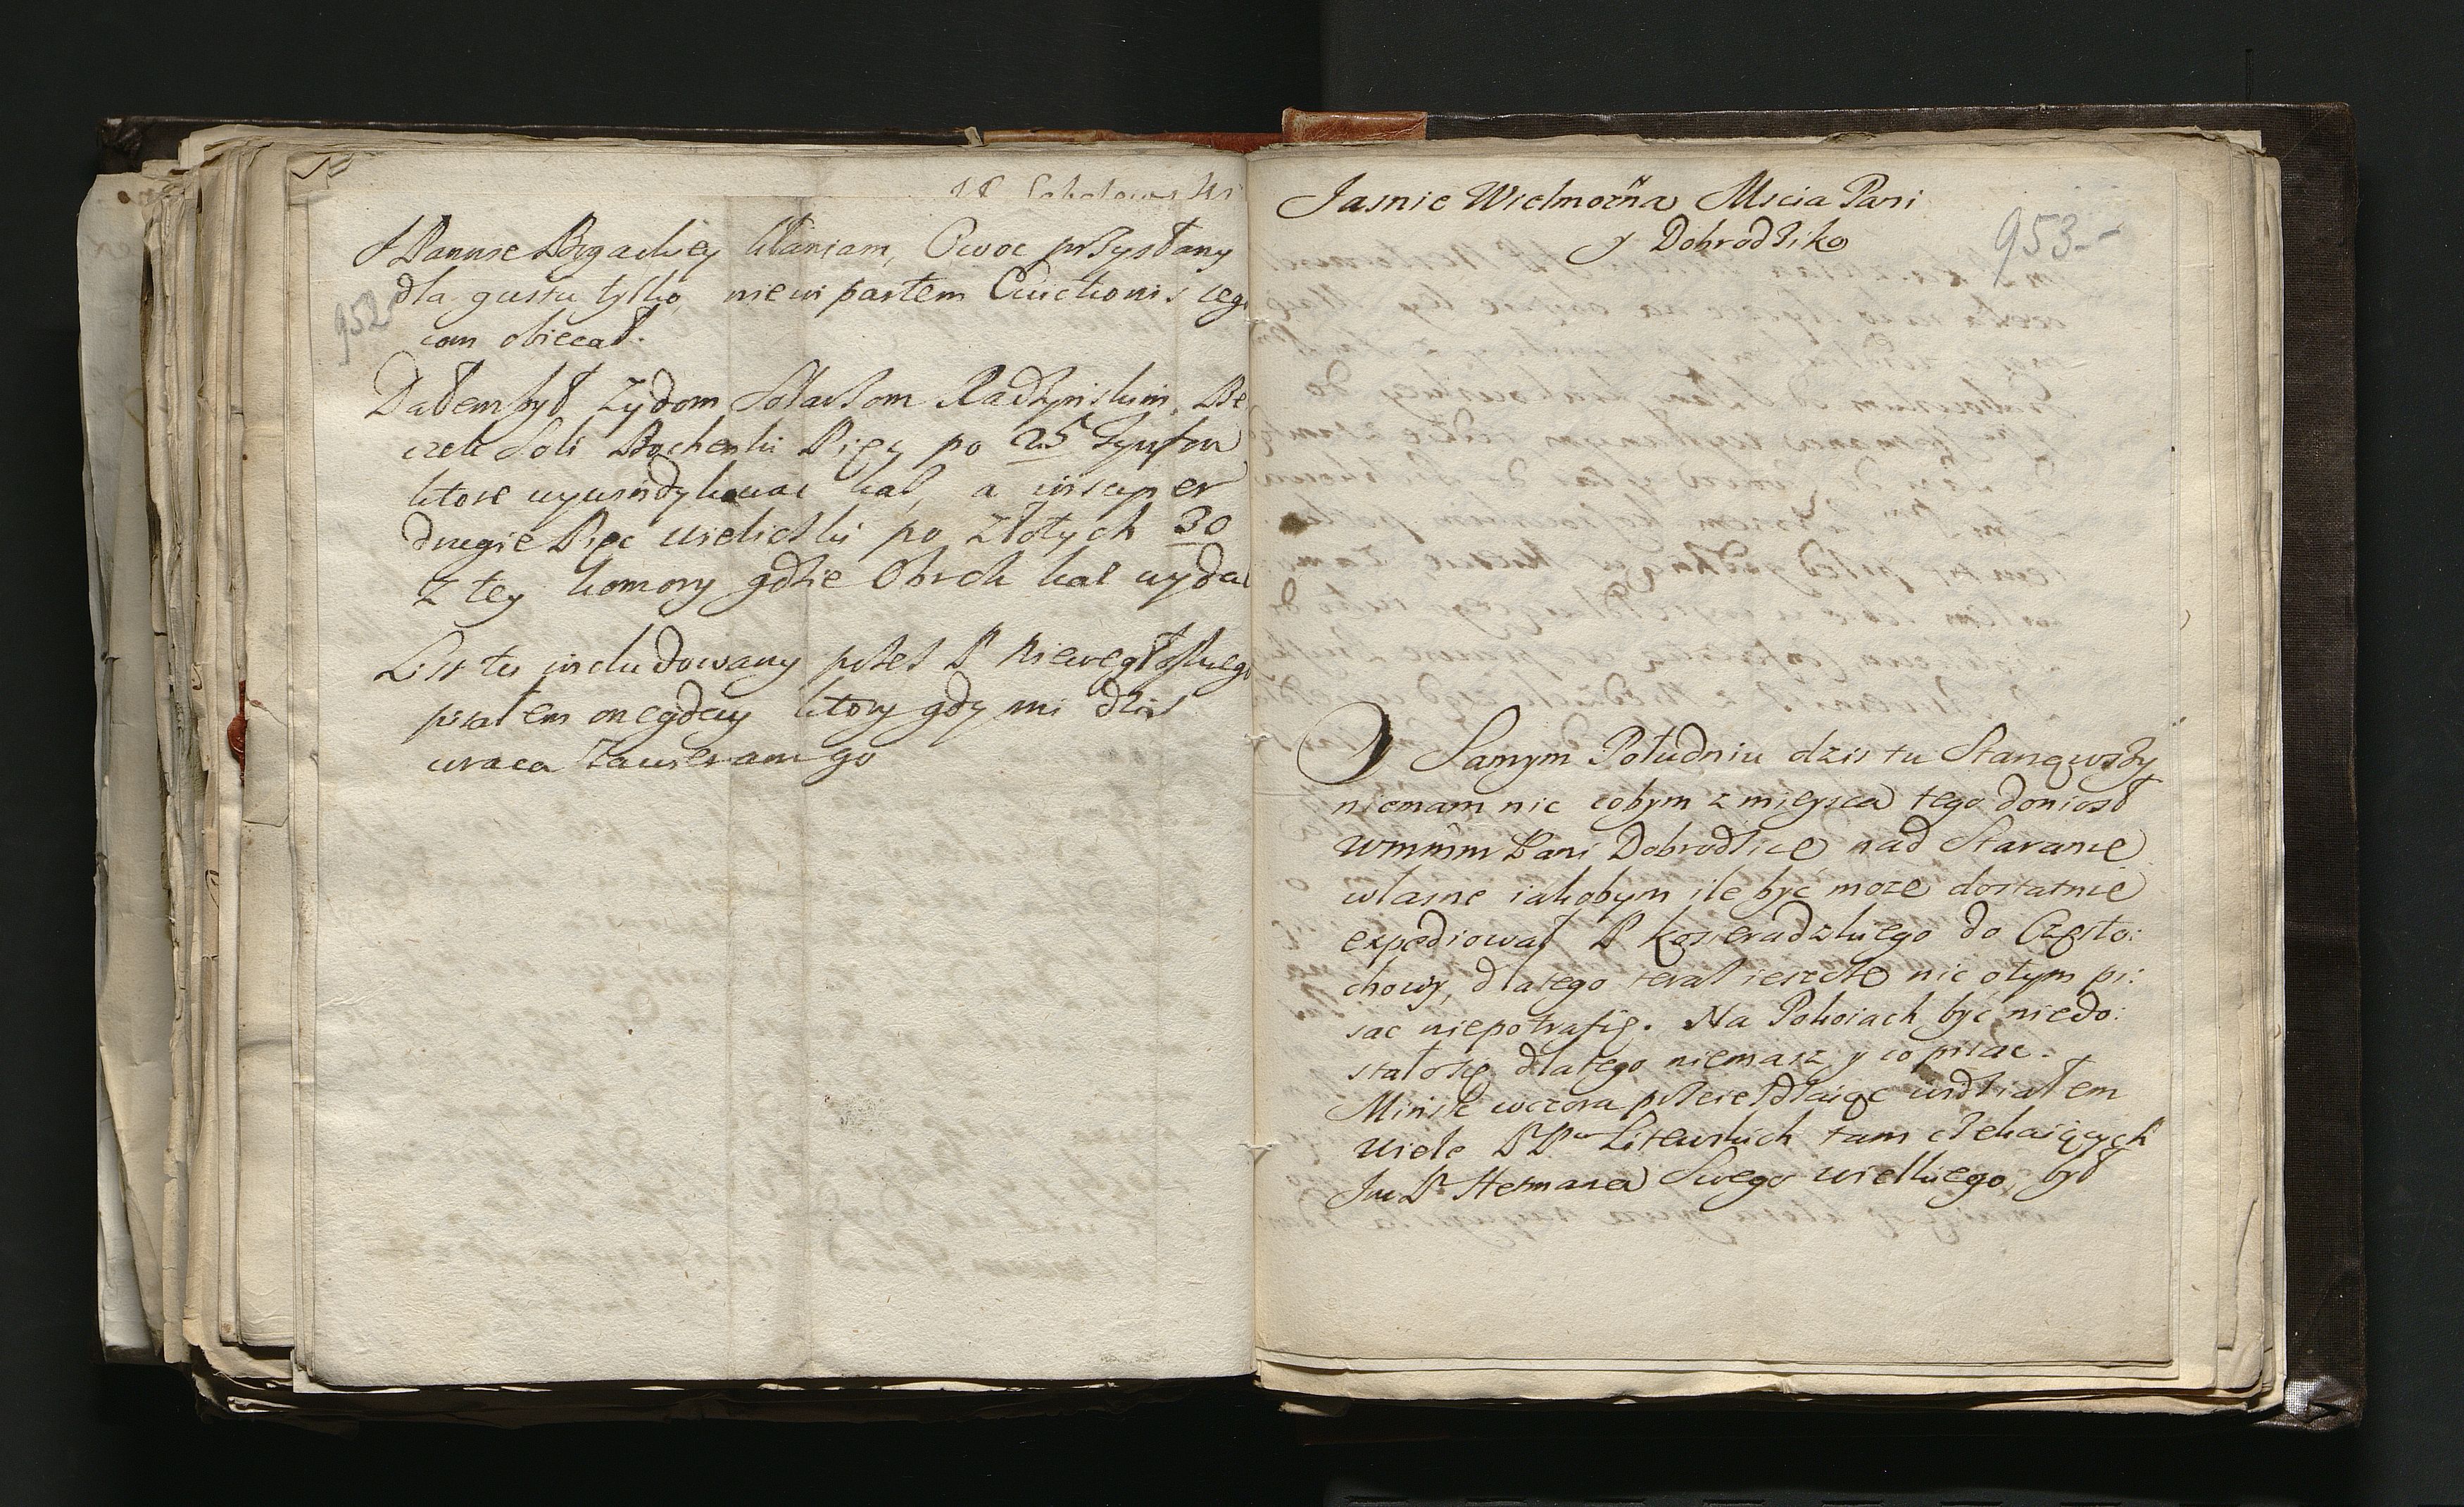 952
Pannie kłaniam, Owoc przysłany
dla gustu tylko, nie w partem
com obiecał.
Dałem był Zydom Radzynskim, Be
czek Soli Bochenski Pięc po 25 Tynfow
ktore wywindykowac kaz, a insuper
drugie Pięc Wieliczki po Złotych 30
z tey komory gdzie kaz wydac
List tu includowany przez P
pisałem onegday ktory gdy mi dzis
wraca Zawieram go
Jasnie Wielmozna Mscia Pani
y Dobrodziko
953
O Samym Południu dzis tu Stanąwszy
niemam nic cobym z mieysca tego doniosł
Wmmm Pani Dobrodzice nad Staranie
własne iakobym ile być moze dostatnie
expediował P Kosieradzkiego do Często:
chowy, dlatego teraz ieszcze nic o tym pi:
sac niepotrafię. Na Pokoiach być niedo:
stało się, dlatego niemasz y co pisac.
Minsk wczora przeiezdzaiąc widziałem
Wiele PPw Litewskich tam czekaiących
Jm Pa Hetmana Swego wielkiego, był